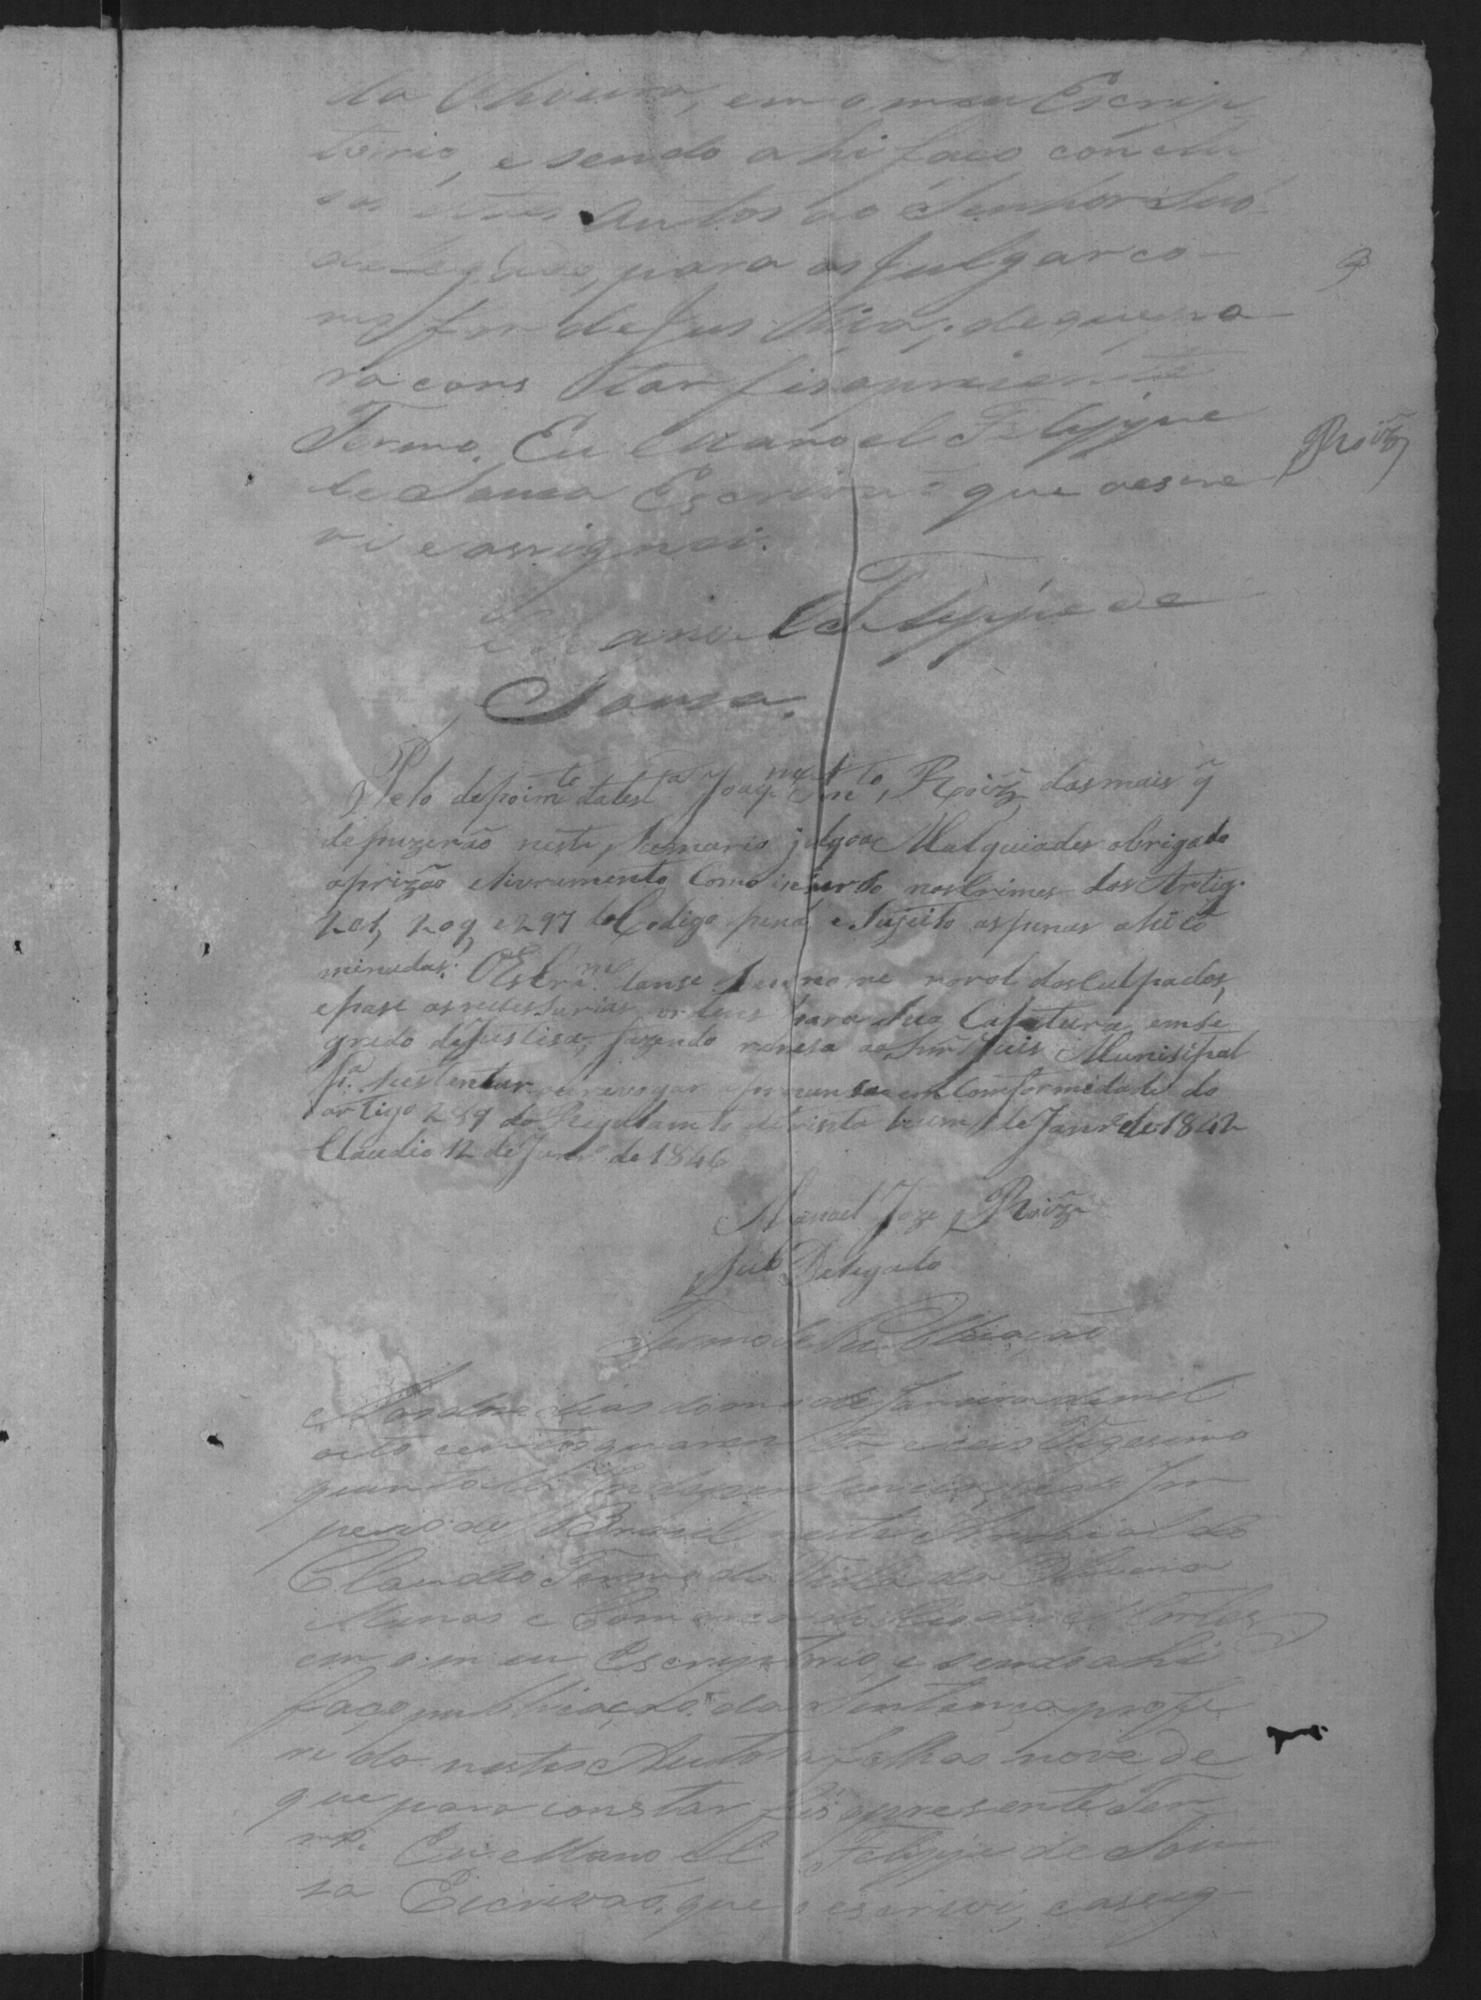 da Oliveira, em o meu Escrip
torio, e sendo ahi faço conclu
sos estes Autos ao Senhor Sub
delegado, para os julgar co-
mo for de Justiça; de que pa-
9
ra constar fis o prezente
Termo. Eu Manoel Felippe
Roiz̃
de Sousa Escrivaõ que o escre
vi e assignei.
Manoel Felippe de
Sousa.
Pelo depoimto da testa Joaqm Roiz̃, das mais q̃
depuzerão neste, Somario julgo a Malquiades obrigado
a prizão e livramento Como incurso nos Crimes dos Artig.
201, 209, e 297 do Codigo penal, e Sujeito as penas ahi co
minadas: O Escram lanse Seu nome no rol dos Culpados,
e pase as nesesarias ordens para Sua Captura, em Se
gredo de Justisa, fazendo remesa ao Snr̃ Juis Munisipal
pa Sustentar ou revogar a pronunsia em Comformidade do
artigo 289 do Regulamto de trinta e um de Janrº de 1842
Claudio 12 de Janrº de 1846
Manoel Joze Roiz̃
Sub Delegado
Termo de Publicação
Aos doze dias do mes de Janeiro de mil
oito centos quarenta e seis Vigesimo
quinto da Independencia, e do Im
perio do Brasil neste Arraial do
Claudio Termo da Villa da Oliveira
Minas e Comarca do Rio das Mortes
em o meu Escriptorio, e sendo ahi
faço publicação da Sentença profe
rida nestes Autos a folhas nove de
que para constar fis o presente Ter
mo. Eu Manoel Felippe de Sou
sa Escrivaõ, que o escrevi, e assig-